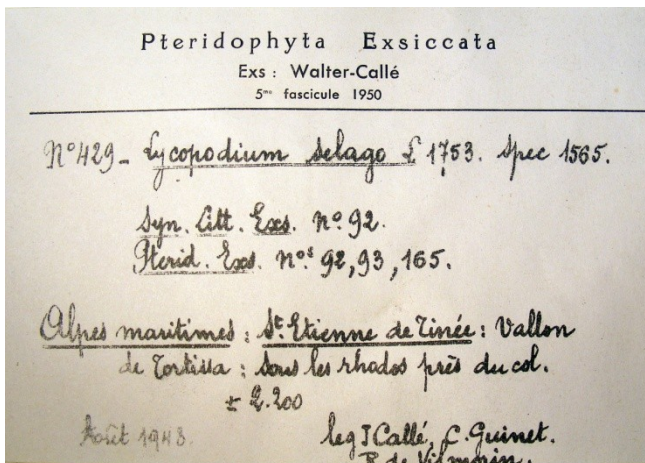 Pteridophyta Exsiccata
Exs : Walter-Callé
5me fascicule 1950
N°429 - Lycopodium selago L 1753. Spec 1565.
Syn. Litt. Exs. n° 92.
Pterid. Exs. nos 92, 93, 165.
Alpes maritimes : St. Etienne de Tinée : Vallon
de Tortissa : sous les rhodos près du col.
± 2.200
Août 1948. leg J Callé, C. Guinet.
R. de Vilmorin.